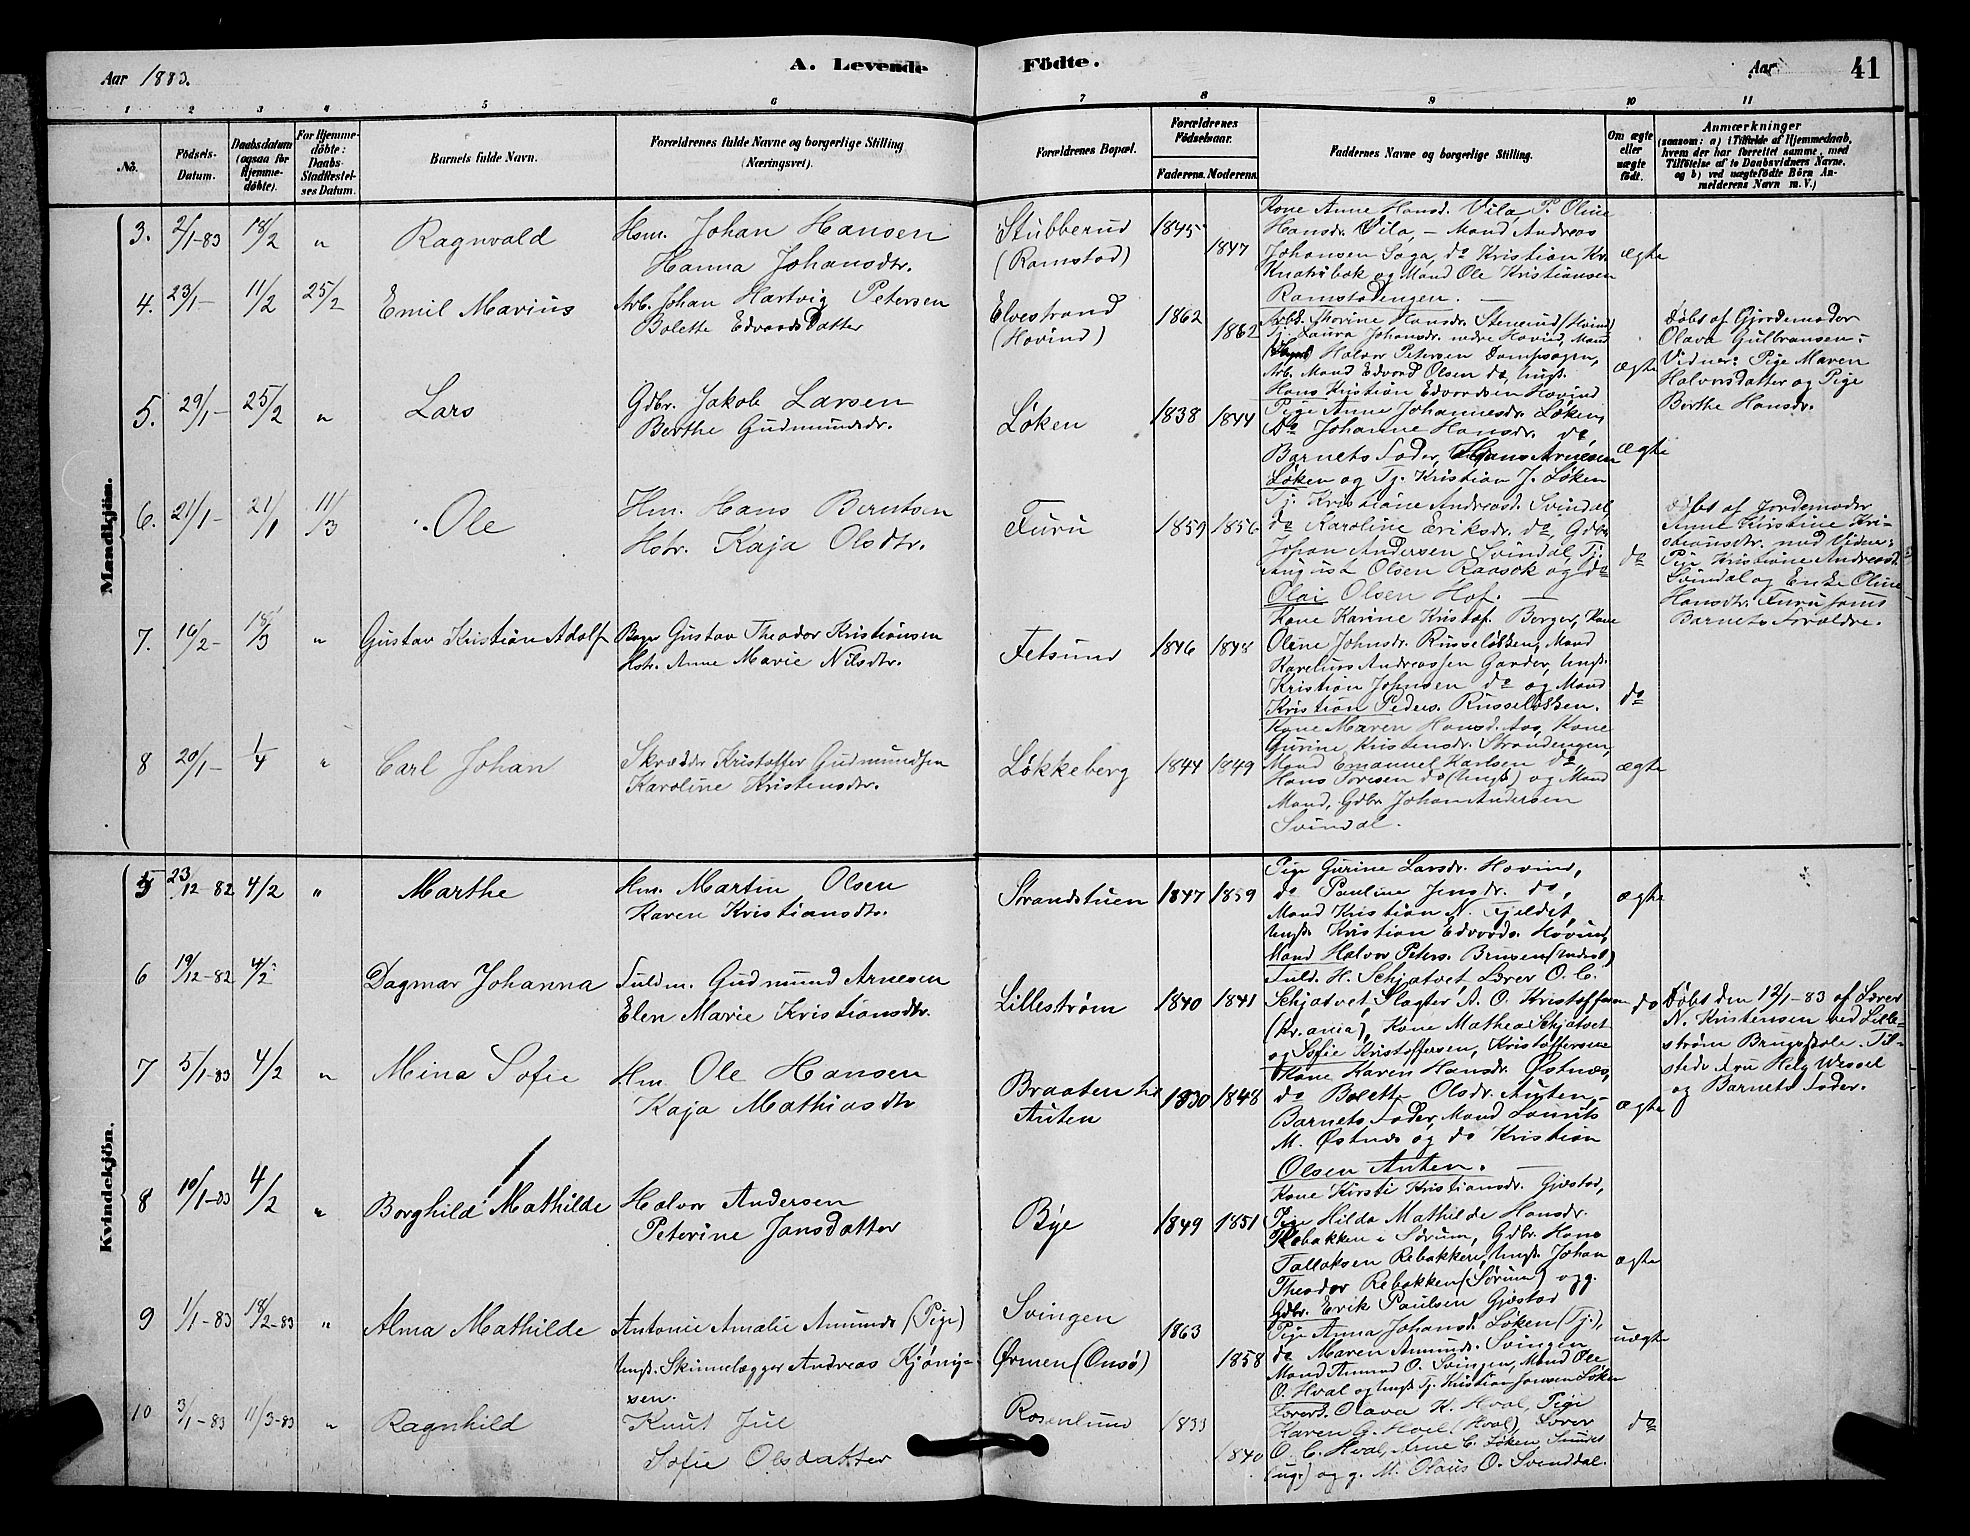 Aar 1883.
A. Levende
Födte.
Aar
41
1 2 3 4 5 6 7 8 9 10 11
No.
Födsels-
Datum.
Daabsdatum
(ogsaa for
Hjemme-
döbte).
For Hjemme-
döbte:
Daabs-
Stadfæstel-
ses Datum.
Barnets fulde Navn.
Forældrenes fulde Navne og borgerlige Stilling
(Næringsvei).
Forældrenes Bopæl.
Forældrenes
Födselsaar.
Faderens. Moderens.
Faddernes Navne og borgerlige Stilling.
Om ægte
eller
uægte
födt.
Anmærkninger
(saasom: a) i Tilfælde af Hjemmedaab,
hvem der har forrettet samme, med
Tilföielse af to Daabsvidners Navne,
og b) ved uægtefödte Börn An-
melderens Navn m. V.)
Mandkjön.
3. 2/1-83 18/2 "
Ragnvald
Hsm. Johan Hansen
Hanna Johansdtr.
Stubberud
(Ramstad)
1845 1847
Kone Anne Hansd. Vila, P. Oline
Hansdr. Vila, – Mand Andreas
Johansen Saga, do Kristian Kr.
Knatribak og Mand Ole Kristiansen
Ramstadengen.
ægte
4. 23/1- 11/2 25/2
Emil Marius
Arb. Johan Hartvig Petersen
Bolette Edvards Datter
Elvestrand
(Hovind)
1862 1862
Hansdr. Stenerud (Hovind)
Tj. Laura Johansdr. nedre Hovind, Mand
Halvor Petersen Dampsagen,
Arb. Mand Edvard Olsen do, Ungk.
Hans Kristian Edvardsen Hovind
ægte
Døbt af Gjordemoder
Olava Gulbransen.
Vidner: Pige Maren
Halvorsdatter og Pige
Berthe Hansdr.
5. 29/1- 25/2 "
Lars
Gdbr. Jakob Larsen
Berthe Gudmundsdr.
Løken
1838 1844
Pige Anne Johannesdr. Løken,
Do Johanne Hansdr. do,
Barnets Fader, Hans Arnesen
Løken og Tj. Kristian J. Løken
ægte
6. 21/1- 21/1 11/3
Ole
Hm. Hans Berntsen
Hstr. Kaja Olsdtr.
Furu
1859 1856
Tj. Kristiane Andreasd. Svindal,
do Karoline Eriksdr. do, Gdbr.
Johan Andersen Svindal, Tj.
August Olsen Raasok og do
Olai Olsen Hof.
do
Døbt af Jordemoder
Anne Kirstine Kri-
stiansdtr. med Vidner:
Pige Kristiane Andreasd.
Svindal og Enke Oline
Hansdtr. Furu samt
Barnets Forældre.
7. 16/2- 18/3 "
Gustav Kristian Adolf
Bager Gustav Theodor Kristiansen
Hstr. Anne Marie Nilsdtr.
Fetsund
1846 1848
Kone Karine Kristof. Berger, Kone
Oline Johnsdr. Russeløkken, Mand
Karelius Andreassen Garder, Ungk.
Kristian Johnsen do og Mand
Kristian Peders. Russeløkken.
do
8 20/1- 1/4 "
Carl Johan
Skrædder Kristoffer Gudmundsen
Karoline Kristensdtr.
Løkkeberg
1844 1849
Kone Maren Hansd. Aas, Kone
Gurine Kristensdr. Strandengen,
Mand Emanuel Karlsen do,
Hans Toresen do (Ungk) og Mand
Mand, Gdbr Johan Andersen
Svindal.
ægte
Kvindekjön.
5 23/12-82 4/2 "
Marthe
Hm. Martin Olsen
Karen Kristiansdtr.
Strandstuen
1847 1859
Pige Gurine Larsdr. Hovind,
do Pauline Jensdr. do,
Mand Kristian N. Fjeldet,
Ungk. Kristian Edvards. Hovind,
Mand Halvor Peters. Brusen
ægte
6 19/12-82 4/2
Dagmar Johanna
Fuldm. Gudmund Arnesen
Elen Marie Kristiansdtr.
Lillestrøm
1840 1841
Fuld. H. Schjatvet, Lærer O. C.
Schjatvet, Slagter A. O. Kristoffersen
(Kr.ania), Kone Mathea Schjatvet
og Sofie Kristoffersen, Kristoffersens
do
Døbt den 12/1-83 af Lærer
N. Kristensen ved Lille-
strøm Brugsskole. Til-
stede Fru Helg Wessel
og Barnets Fader.
7 5/1-83 4/2 "
Mina Sofie
Hm Ole Hansen
Kaja Mathiasdtr
Braaten
Auten
1830 1848
Kone Karen Hansdr. Østnæs,
do Bolette Olsdr. Auten,
Barnets Fader, Mand Laurits
M. Østnæs og do Kristian
Olsen Auten.
ægte
8 10/1-83 4/2 "
Borghild Mathilde
Halvor Andersen
Peterine Jansdatter
Bye
1849 1851
Kone Kirsti Kristiansdr. Gjæstad,
Pige Hilda Mathilde Hansdr.
Rebakken i Sørum, Gdbr. Hans
Tollaksen Rebakken, Ungk. Johan
Theodor Rebakken (Sørum) og
Gdbr. Erik Paulsen Gjæstad
ægte
9 1/1-83 18/2-83 "
Alma Mathilde
Antonie Amalie Amunds (Pige)
Ungk. Skinnelægger Andreas Kjønig-
sen.
Svingen
Ørmen (Onsø)
1863 1858
Pige Anna Johansd. Løken (Tj.),
do Maren Amunds. Svingen
Mand Amund O. Svingen, Mand Ole
O. Hval og Ungk. Tj. Kristian Jansen Løken
uægte
10 3/1-83 11/3-83 "
Ragnhild
Knut Jul
Sofie Olsdatter
Rosenlund
1833 1840
Lærerk. Olava K. Hval, Pige
Karen G. Hoel (Hval), Lærer
O. C. Hval, Arne C. Løken, Smed
(ug.) og g. M. Olaus O. Svenddal.
do